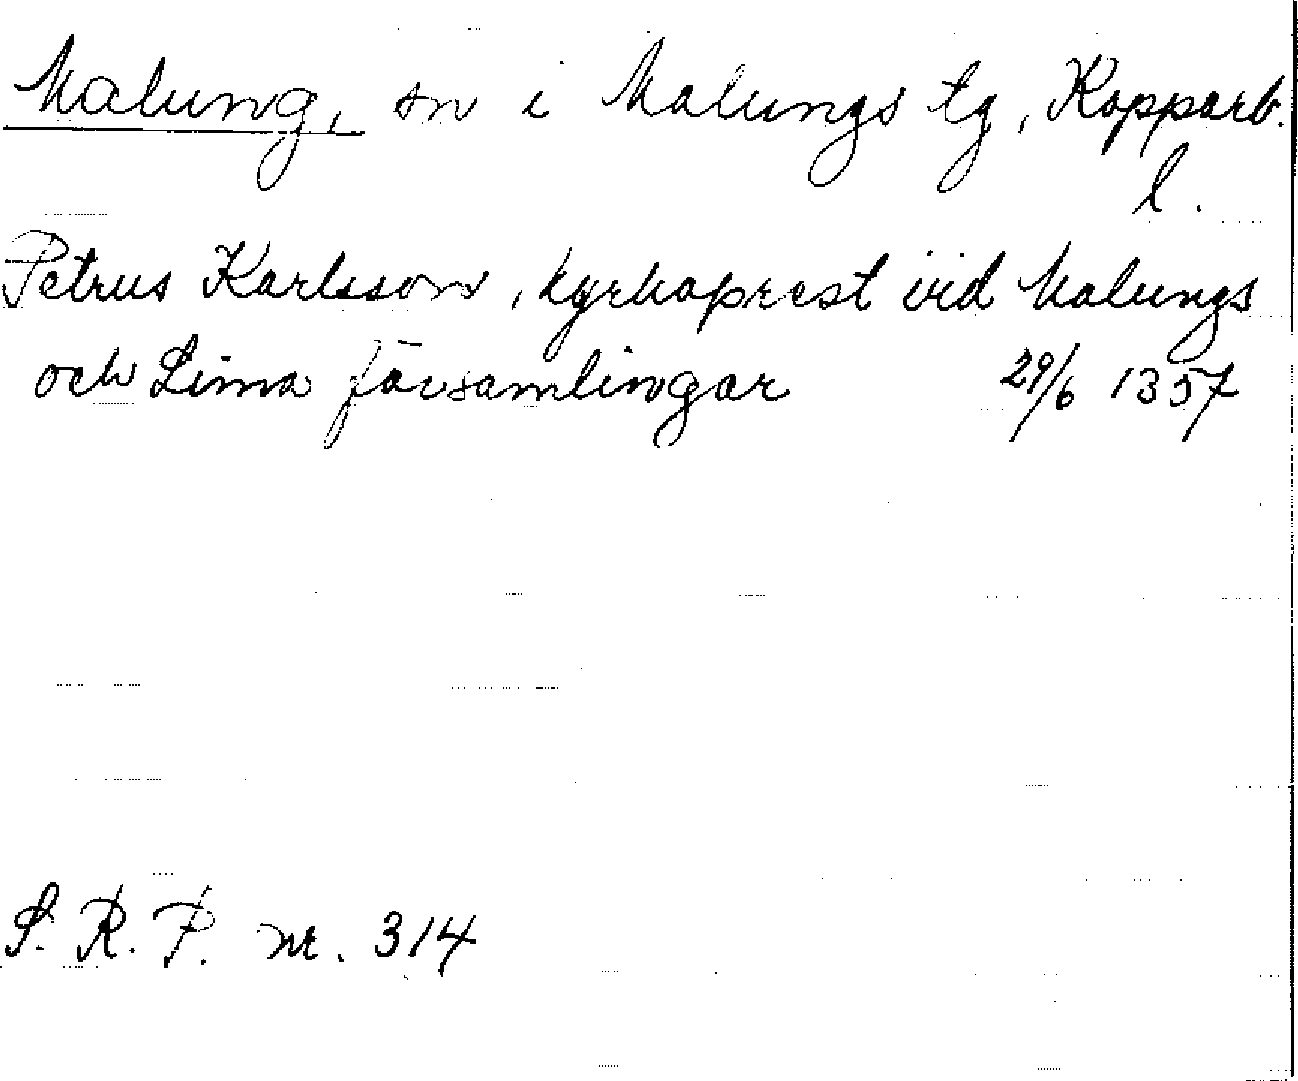 Malung, sn i Malungs tg, Kopparb.
l.
Petrus Karlsson, kyrkoprest vid Malungs
och Lima församlingar 29/6 1357
S. R. P. nr. 314